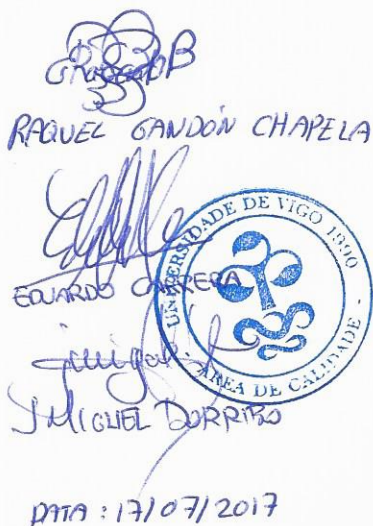 RAQUEL GANDÓN CHAPELA
EDUARDO CARRERA
UNIVERSIDADE DE VIGO 1990
- ÁREA DE CALIDADE -
J MIGUEL DORRIBO
DATA : 17/07/2017